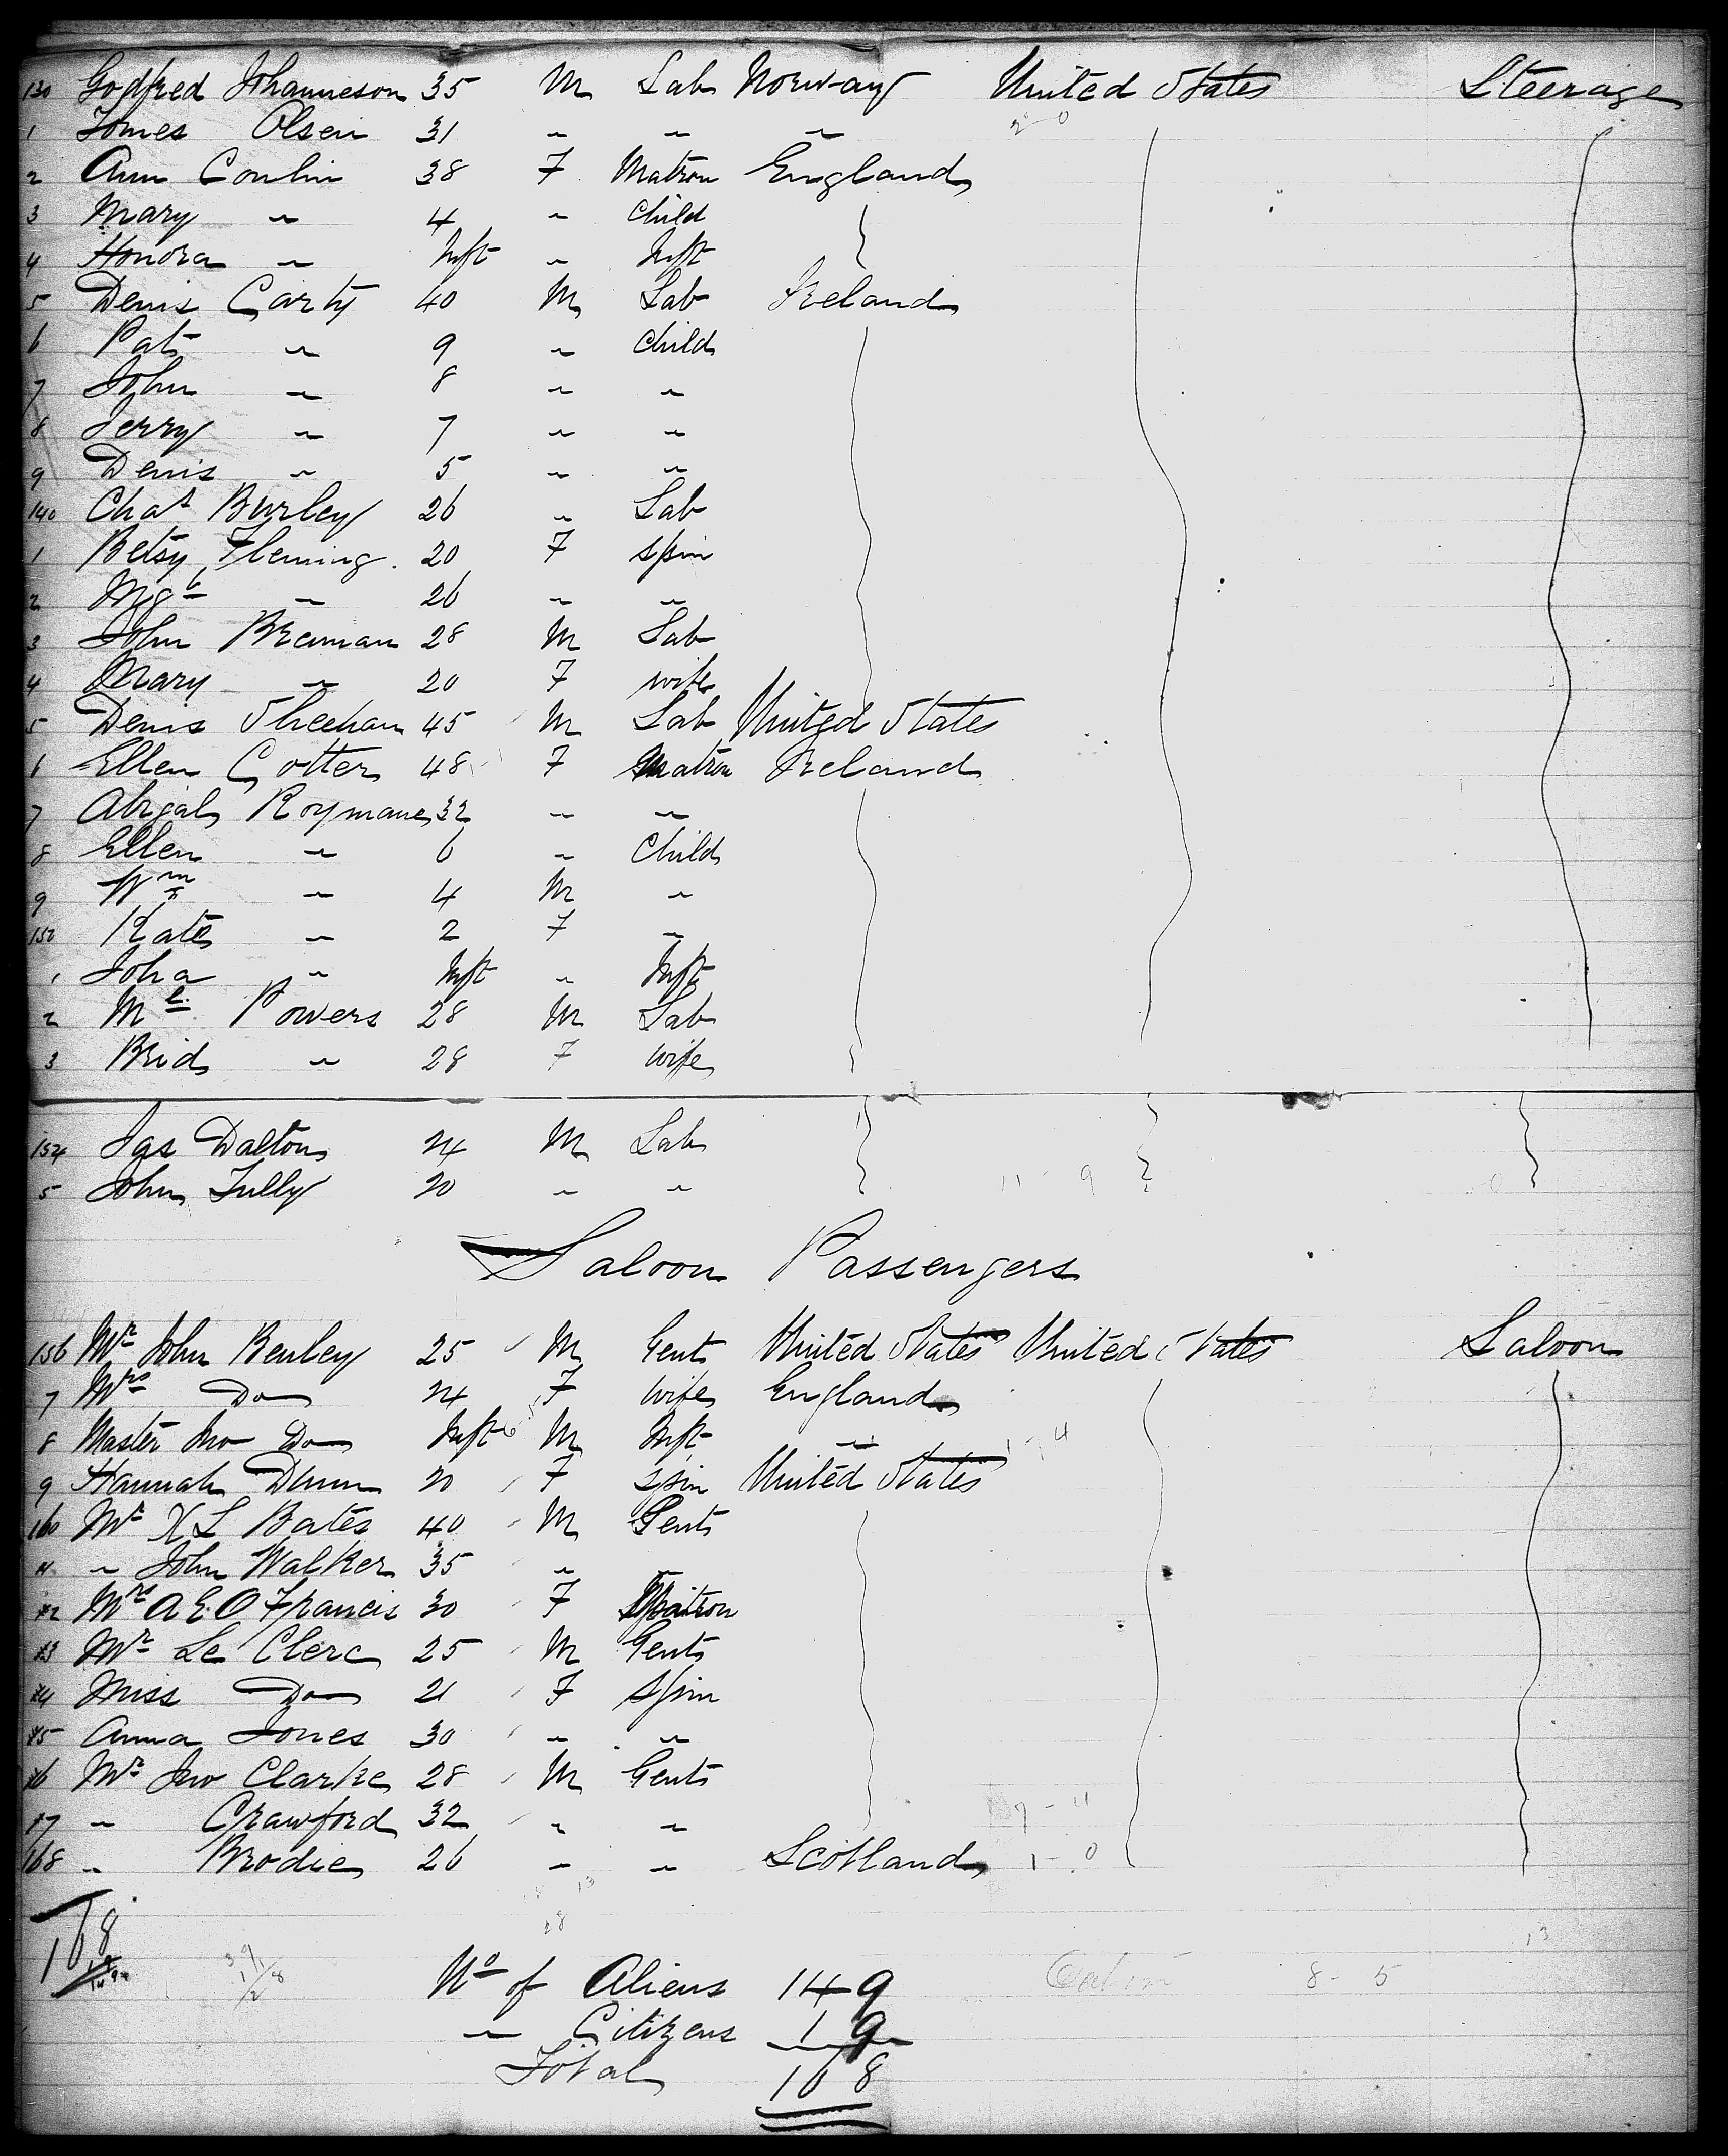 130 Godfred Johanneson 35 M Lab Norway United States Steerage
1 Jomes Olsen 31 " " "
2 Ann Conlin 38 F Matron England
3 Mary " 4 " Child
4 Honora " Inft " Inft
5 Denis Carty 40 M Lab Ireland
6 Pat " 9 " Child
7 John " 8 " "
8 Jerry " 7 " "
9 Denis " 5 " "
140 Chas Burley 26 " Lab
1 Betsy Fleming. 20 F Spin
2 Mgt " 26 " "
3 John Brennan 28 M Lab
4 Mary " 20 F wife
5 Denis Sheehan 45 M Lab United States
6 Ellen Cotter 48 F Matron Ireland
7 Abigal Roymane 32 " "
8 Ellen " 6 " Child
9 Wm " 4 M "
150 Kate " 2 F "
1 Joha " Inft " Inft
2 Ml Powers 28 M Lab
3 Brid " 28 F wife
154 Jas Dalton 24 M Lab
5 John Tully 20 " "
11 - 9
Saloon Passengers
156 Mr John Benley 25 M Gent United States United States Saloon
7 Mrs Do 24 F wife England
8 Master Jno Do Inft M Inft "
9 Hannah Dunn 20 F Spin United States
160 Mr H L Bates 40 M Gent
1 " John Walker 35 "
2 Mrs A E O Francis 30 F Matron
3 Mr Le Clerc 25 M Gent
4 Miss Do 21 F Spin
5 Anna Jones 30 " "
6 Mr Jno Clarke 28 M Gent
7 " Crawford 32 " "
168 " Brodie 26 " " Scotland 1 - 0
168
No of Aliens 149 8 - 5
" Citizens 19
Total 168